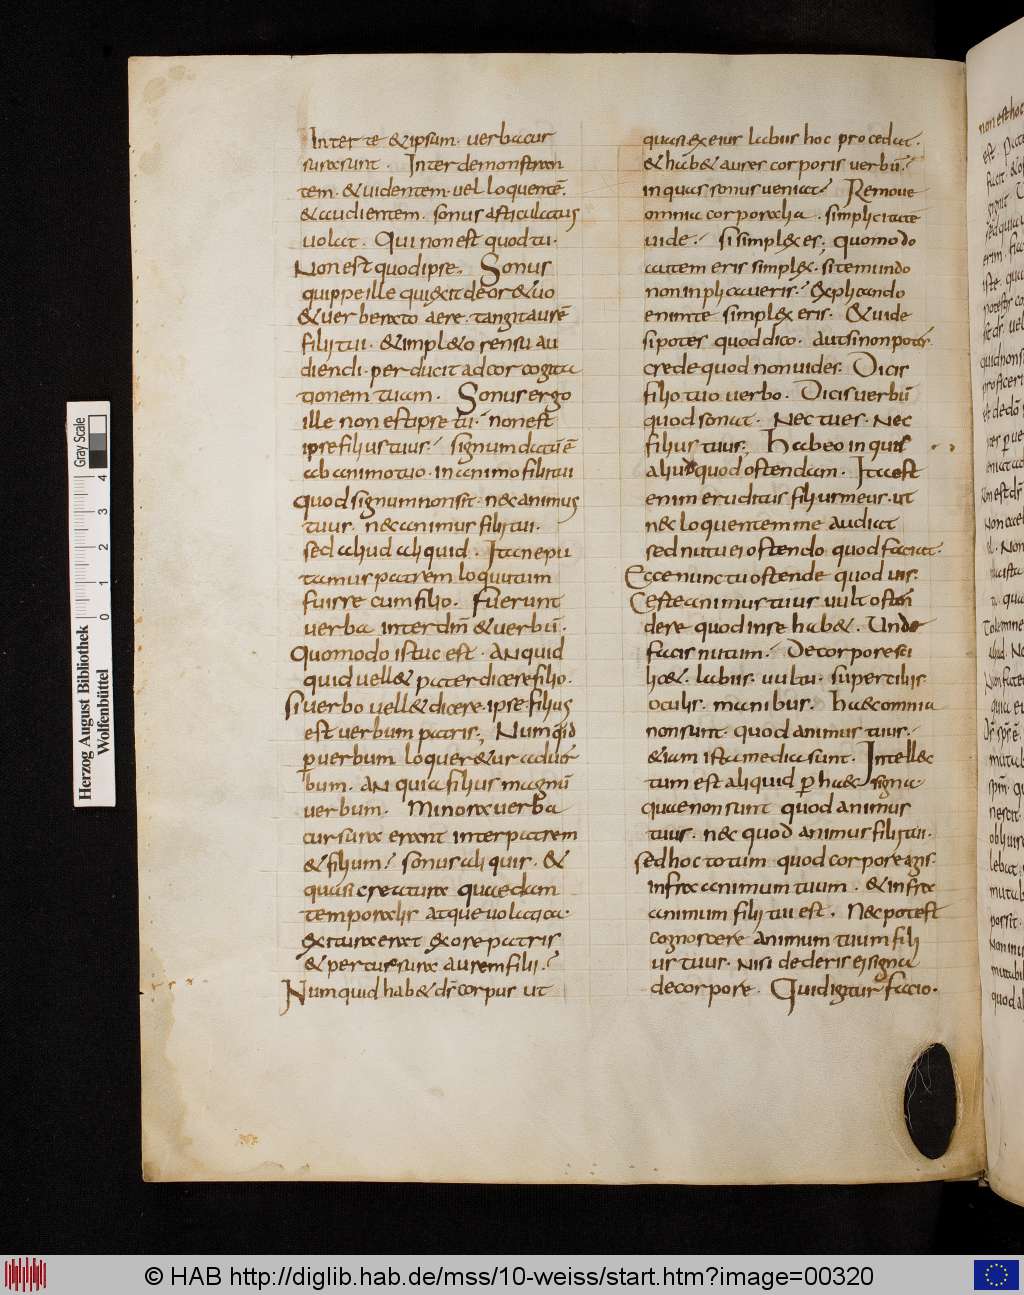 Inter te & ipsum. uerba cur
sura sunt. Inter demonstran
tem. & uidentem. uel loquentē.
& audientem. sonus articulatus
uolat. Qui non est quod tu.
Non est quod ipse. Sonus
quippe ille qui exit de ore & uo
& uerberato aere. tangit aurē
filii tui. & impleto sensu au
diendi. perducit ad cor cogita
tionem tuam. Sonus ergo
ille non est ipse tu. non est
ipse filius tuus. signum datū ē
ab animo tuo. in animo filii tui
Quod signum non sit. nec animus
tuus. nec animus filii tui.
sed aliud aliquid. Ita ne pu
tamus patrem loquutum
fuisse cum filio. Fuerunt
uerba inter dm̄ & uerbū.
Quomodo istuc est. An quid
quid uellet pater dicere filio.
si uerbo uellet dicere. ipse filius
est uerbum patris; Numquid
per uerbum loqueretur ad uer
bum. An quia filius magnū
uerbum. Minora uerba
cursura erant inter patrem
& filium. sonus aliquis. &
quasi creatura quaedam
temporalis atque uolatica.
exitura erat ex ore patris
& percussura aurem filii.
Numquid habet ds̄ corpus ut
quasi ex eius labiis hoc procedat.
& habet aures corporis uerbū.
in quas sonus ueniat. Remoue
omnia corporalia. simplicitate
uide. si simplex es; quomodo
autem eris simplex. si te mundo
non inplicaueris. Explicando
enim te simplex eris. & uide
si potes quod dico. aut si non potes.
crede quod non uides. Dicis
filio tuo uerbo. Dicis uerbū
quod sonat. Nec tu es. Nec
filius tuus; Habeo in quis
aliud quod ostendam. Ita est
enim eruditus filius meus. ut
nec loquentem me audiat
sed nutu ei ostendo quod faciat.
Ecce nunc tu ostende quod uis.
Certe animus tuus uult osten
dere quod in se habet. Unde
facis nutum. De corpore sci
licet. labiis. uultu. superciliis.
oculis. manibus. Haec omnia
non sunt. quod animus tuus.
etiam ista media sunt. Intellec
tum est aliquid per haec signa.
quae non sunt quod animus
tuus. nec quod animus filii tui.
sed hoc totum. quod corpore agis.
infra animum tuum. & infra
animum filii tui est. Nec potest
cognoscere animum tuum fili
us tuus. nisi dederis ei signa
de corpore. Quid igitur facio.
Herzog August Bibliothek
Wolfenbüttel
Gray Scale
0 1 2 3 4
© HAB http://diglib.hab.de/mss/10-weiss/start.htm?image=00320